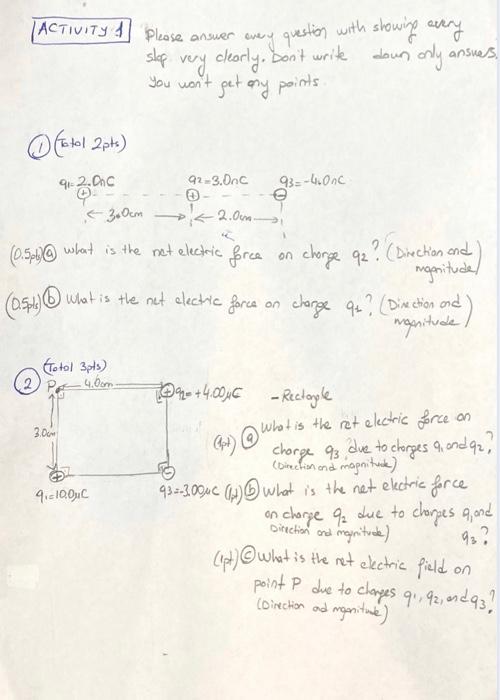 ACTIVITY 1
Please answer every question with showing every
step very clearly. Don't write down only answers.
You won't get any points.
① (Total 2pts)
q1=2.0nC q2=3.0nC q3=-4.0nC
3.0cm 2.0cm
(0.5pts) ⓐ What is the net electric force on charge q2? (Direction and
magnitude)
(0.5pts) ⓑ What is the net electric force on charge q1? (Direction and
magnitude)
(Total 3pts)
② P 4.0cm q2=+4.00μC - Rectangle
3.0cm
q1=10.0μC q3=-3.00μC
(1pt) ⓐ What is the net electric force on
charge q3 due to charges q1 and q2?
(Direction and magnitude)
(1pt) ⓑ What is the net electric force
on charge q2 due to charges q1 and
q3?
Direction and magnitude)
(1pt) ⓒ What is the net electric field on
point P due to charges q1, q2, and q3?
(Direction and magnitude)